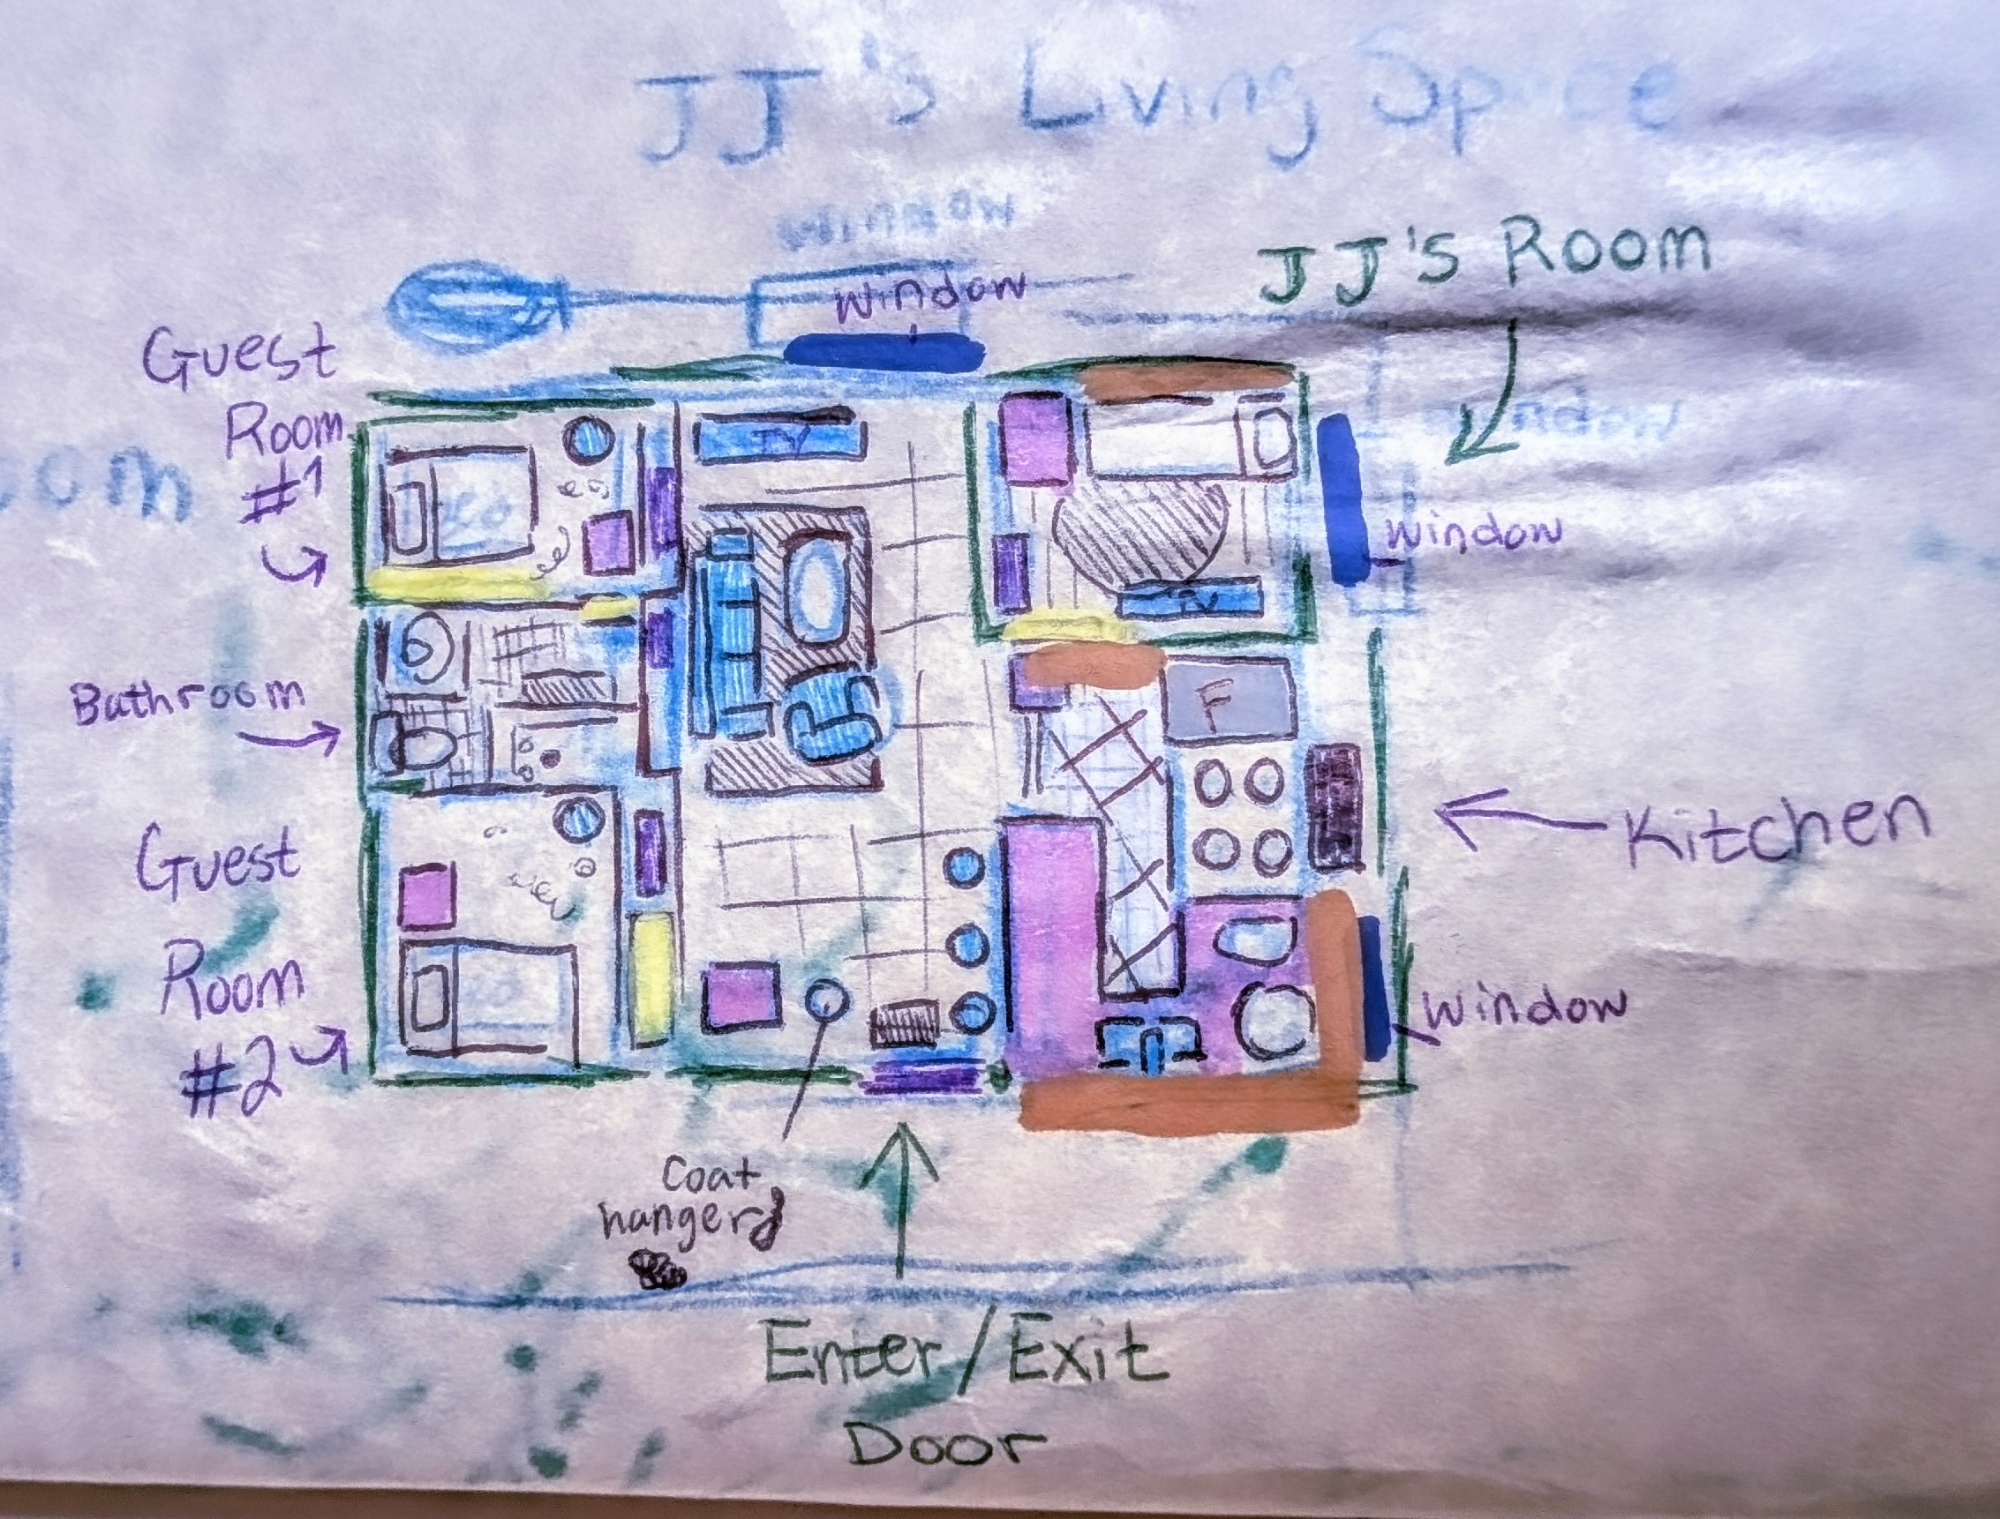 JJ's Living Space
Window
Window
JJ's Room
Guest
Room
#1
TV
oom
Window
Window
TV
Bathroom
F
Kitchen
Guest
Room
#2
Window
Coat
hanger
Enter/Exit
Door